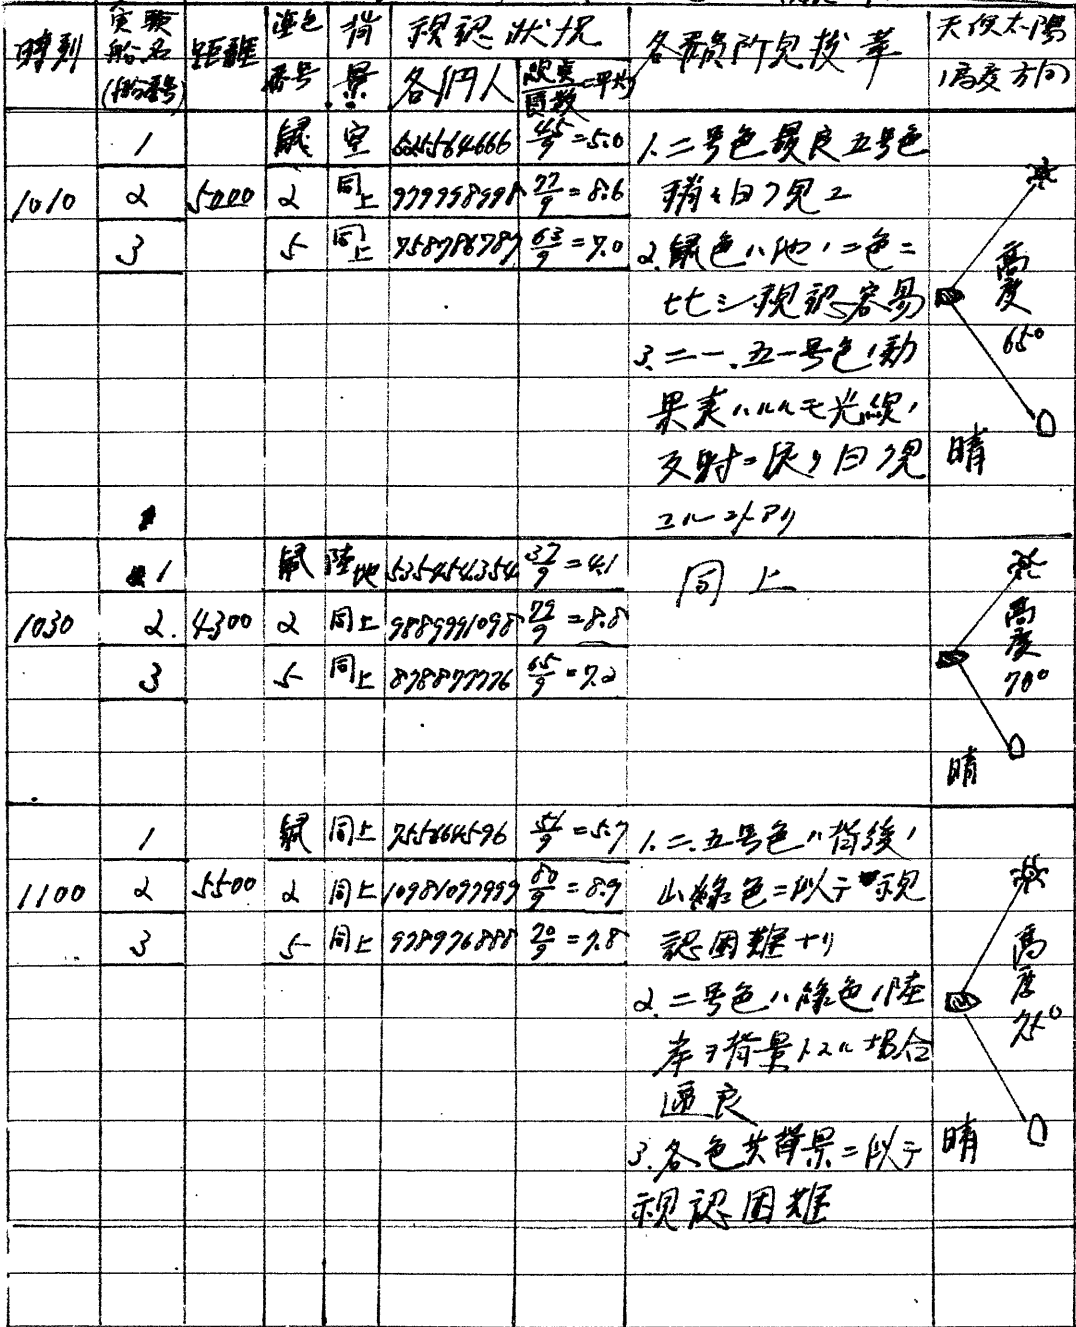 時刻 実験船名(船番号) 距離 塗色番号 背景 視認状況 各員所見抜萃 天候太陽(高度方向)
各個人 総点/員数=平均
1 鼠 空 45/9=5.0 1.二号色最良五号色
1010 2 5000 2 同上 979998998 77/9=8.6 稍々白ク見ユ
3 5 同上 758786787 63/9=7.0 2.鼠色ハ他ノ二色ニ
比シ視認容易
高度
65°
3.二一.五一号色ノ効
果大ハルルモ光線ノ
反射ニ依リ白ク見
晴
ユルコトアリ
1 鼠 陸地 535454354 37/9=4.1 同上
1030 2. 4300 2 同上 9889991098 79/9=8.8
3 5 同上 878877776 65/9=7.2
高度
70°
晴
1 鼠 同上 755664596 51/9=5.7 1.二.五号色ハ背後ノ
1100 2 5500 2 同上 10981099999 80/9=8.9 山緑色ニ似テ視
3 5 同上 978976888 70/9=7.8 認困難ナリ
高度
75°
2.二号色ハ緑色ノ陸
岸ヲ背景トスル場合
適良
3.各色共背景ニ似テ
晴
視認困難